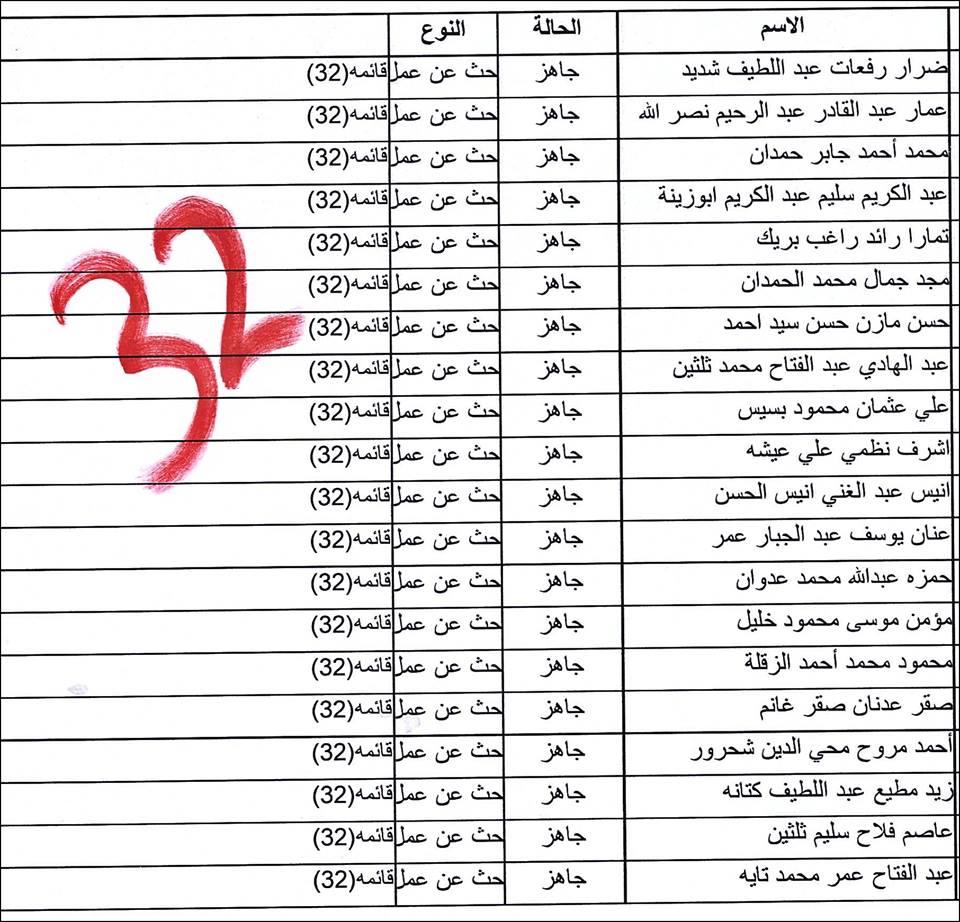 الاسم الحالة النوع
ضرار رفعات عبد اللطيف شديد جاهز حث عن عمل قائمه(32)
عمار عبد القادر عبد الرحيم نصر الله جاهز حث عن عمل قائمه(32)
محمد أحمد جابر حمدان جاهز حث عن عمل قائمه(32)
عبد الكريم سليم عبد الكريم ابوزينة جاهز حث عن عمل قائمه(32)
تمارا رائد راغب بريك جاهز حث عن عمل قائمه(32)
مجد جمال محمد الحمدان جاهز حث عن عمل قائمه(32)
حسن مازن حسن سيد احمد جاهز حث عن عمل قائمه(32)
عبد الهادي عبد الفتاح محمد ثلثين جاهز حث عن عمل قائمه(32)
علي عثمان محمود بسيس جاهز حث عن عمل قائمه(32)
اشرف نظمي علي عيشه جاهز حث عن عمل قائمه(32)
انيس عبد الغني انيس الحسن جاهز حث عن عمل قائمه(32)
عنان يوسف عبد الجبار عمر جاهز حث عن عمل قائمه(32)
حمزه عبدالله محمد عدوان جاهز حث عن عمل قائمه(32)
مؤمن موسى محمود خليل جاهز حث عن عمل قائمه(32)
محمود محمد أحمد الزقلة جاهز حث عن عمل قائمه(32)
صقر عدنان صقر غانم جاهز حث عن عمل قائمه(32)
أحمد مروح محي الدين شحرور جاهز حث عن عمل قائمه(32)
زيد مطيع عبد اللطيف كتانه جاهز حث عن عمل قائمه(32)
عاصم فلاح سليم ثلثين جاهز حث عن عمل قائمه(32)
عبد الفتاح عمر محمد تايه جاهز حث عن عمل قائمه(32)
32